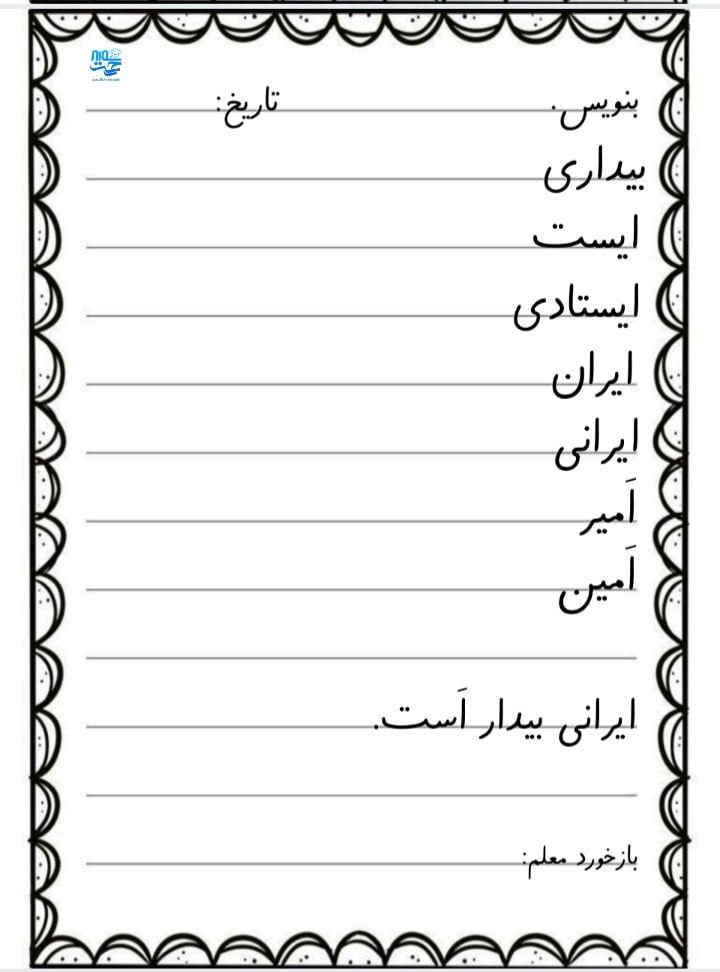 بنویس. تاریخ:
بیداری
ایست
ایستادی
ایران
ایرانی
اَمیر
اَمین
ایرانی بیدار اَست.
بازخورد معلم: